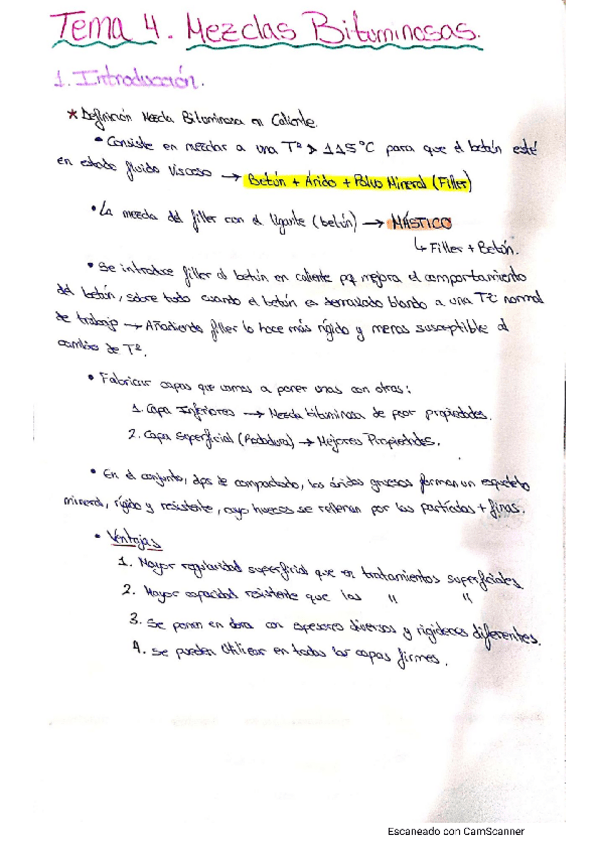 Tema 4. Mezclas Bituminosas.
1. Introducción.
* Definición Mezcla Bituminosa en Caliente.
• Consiste en mezclar a una Tª > 115°C para que el betún esté
en estado fluido viscoso → Betún + Árido + Polvo Mineral (Filler)
• La mezcla del filler con el ligante (betún) → MÁSTICO
↳ Filler + Betún.
• Se introduce filler al betún en caliente pq mejora el comportamiento
del betún, sobre todo cuando el betún es demasiado blando a una Tª normal
de trabajo → Añadiendo filler lo hace más rígido y menos susceptible al
cambio de Tª.
• Fabricar capas que vamos a poner unas con otras:
1. Capa Inferiores → Mezcla bituminosa de peor propiedades.
2. Capa Superficial (Rodadura) → Mejores Propiedades.
• En el conjunto, dps de compactado, los áridos gruesos forman un esqueleto
mineral, rígido y resistente, cuyo huecos se rellenan por las partículas + finas.
• Ventajas
1. Mayor regularidad superficial que en tratamientos superficiales
2. Mayor capacidad resistente que los " "
3. Se ponen en obra con espesores diversos y rigideces diferentes.
4. Se pueden utilizar en todas las capas firmes.
Escaneado con CamScanner